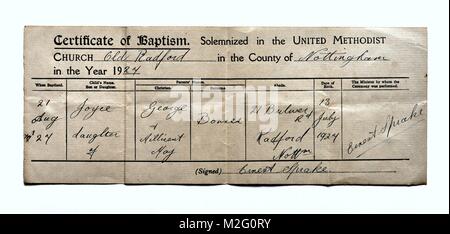 Certificate of Baptism. Solemnized in the UNITED METHODIST
CHURCH Old Radford in the County of Nottingham
in the Year 1924
When Baptized. Child's Name. Son or Daughter. Parents' Names. Christian. Surname. Abode. Date of Birth. The Minister by whom the Ceremony was performed.
21 Joyce George 21 Bulwer 13
Aug daughter & Bonser Rd July Ernest Sprake
24 of Millicent Radford 1924
May Nottm
(Signed) Ernest Sprake
alamy
Image ID: E2G0RY
www.alamy.com